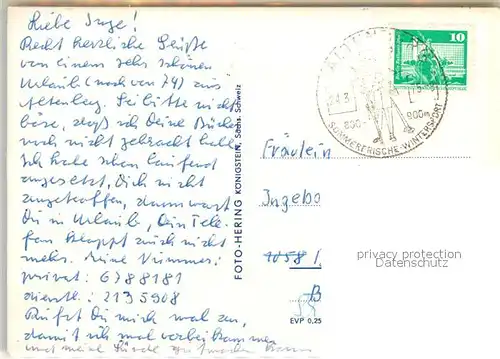 Liebe Inge!
Recht herzliche Grüße
von einem sehr schönen
Urlaub (noch von 74) aus
Altenberg. Sei bitte nicht
böse, daß ich Deine Bücher
noch nicht gebracht habe
Ich habe schon laufend
angesetzt, Dich nicht
angetroffen, dann warst
Du in Urlaub, Dein Tele-
fon klappt auch nicht
mehr. Meine Nummer:
privat: 6788181
dienstl.: 2135908
Rufst Du mich mal an,
damit ich mal vorbei kommen
und meine Sünde gutmachen kann
FOTO-HERING KÖNIGSTEIN, Sächs. Schweiz
10
800-
900m
SOMMERFRISCHE-WINTERSPORT
Fräulein
Ingebo
1058
B
EVP 0,25
privacy protection
Datenschutz